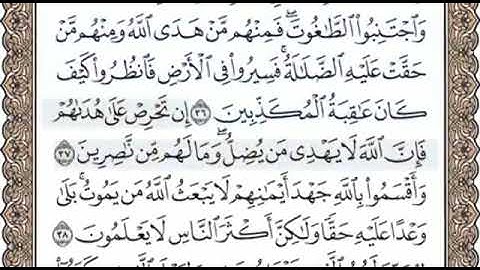 وَٱجْتَنِبُوا۟ ٱلطَّـٰغُوتَ ۖ فَمِنْهُم مَّنْ هَدَى ٱللَّهُ وَمِنْهُم مَّنْ
حَقَّتْ عَلَيْهِ ٱلضَّلَـٰلَةُ ۚ فَسِيرُوا۟ فِى ٱلْأَرْضِ فَٱنظُرُوا۟ كَيْفَ
كَانَ عَـٰقِبَةُ ٱلْمُكَذِّبِينَ ٣٦ إِن تَحْرِصْ عَلَىٰ هُدَىٰهُمْ
فَإِنَّ ٱللَّهَ لَا يَهْدِى مَن يُضِلُّ ۖ وَمَا لَهُم مِّن نَّـٰصِرِينَ ٣٧
وَأَقْسَمُوا۟ بِٱللَّهِ جَهْدَ أَيْمَـٰنِهِمْ ۙ لَا يَبْعَثُ ٱللَّهُ مَن يَمُوتُ ۚ بَلَىٰ
وَعْدًا عَلَيْهِ حَقًّا وَلَـٰكِنَّ أَكْثَرَ ٱلنَّاسِ لَا يَعْلَمُونَ ٣٨